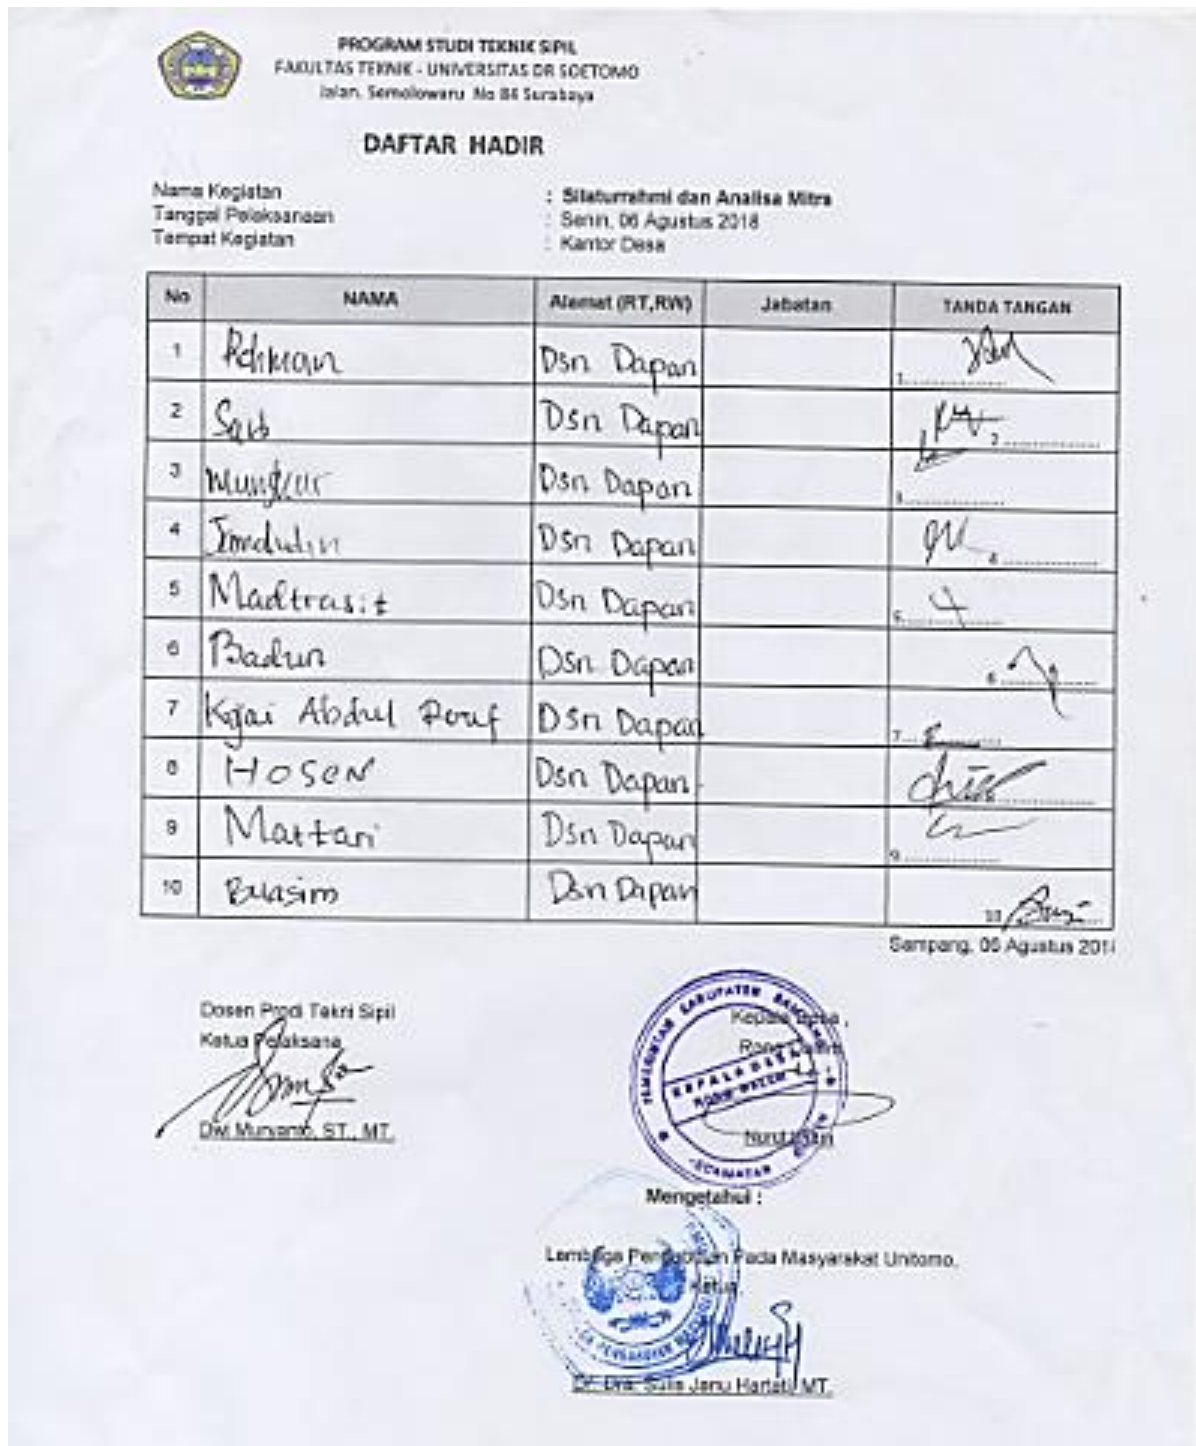 PROGRAM STUDI TEKNIK SIPIL
FAKULTAS TEKNIK - UNIVERSITAS DR SOETOMO
Jalan. Semolowaru No 84 Surabaya
DAFTAR HADIR
Nama Kegiatan : Silaturrahmi dan Analisa Mitra
Tanggal Pelaksanaan : Senin, 06 Agustus 2018
Tempat Kegiatan : Kantor Desa
No NAMA Alamat (RT,RW) Jabatan TANDA TANGAN
1 Rohman Dsn Dapan 1
2 Dsn Dapan 2
3 Dsn Dapan 3
4 Imdudin Dsn Dapan 4
5 Madtrasit Dsn Dapan 5
6 Badrun Dsn Dapan 6
7 Kyai Abdul Rouf Dsn Dapan 7
8 HOSEN Dsn Dapan
9 Mattari Dsn Dapan 9
10 Buasim Dsn Dapan 10
Sampang, 06 Agustus 201
Dosen Prodi Tekni Sipil
Ketua Pelaksana
Dwi Muryanto, ST., MT.
PEMERINTAH KABUPATEN SAMPANG
KEPALA DESA
KECAMATAN
Kepala Desa,
Nurul
Mengetahui :
Lembaga Pengabdian Pada Masyarakat Unitomo,
Ketua,
Dr. Dra. Sulis Janu Hartati, MT.